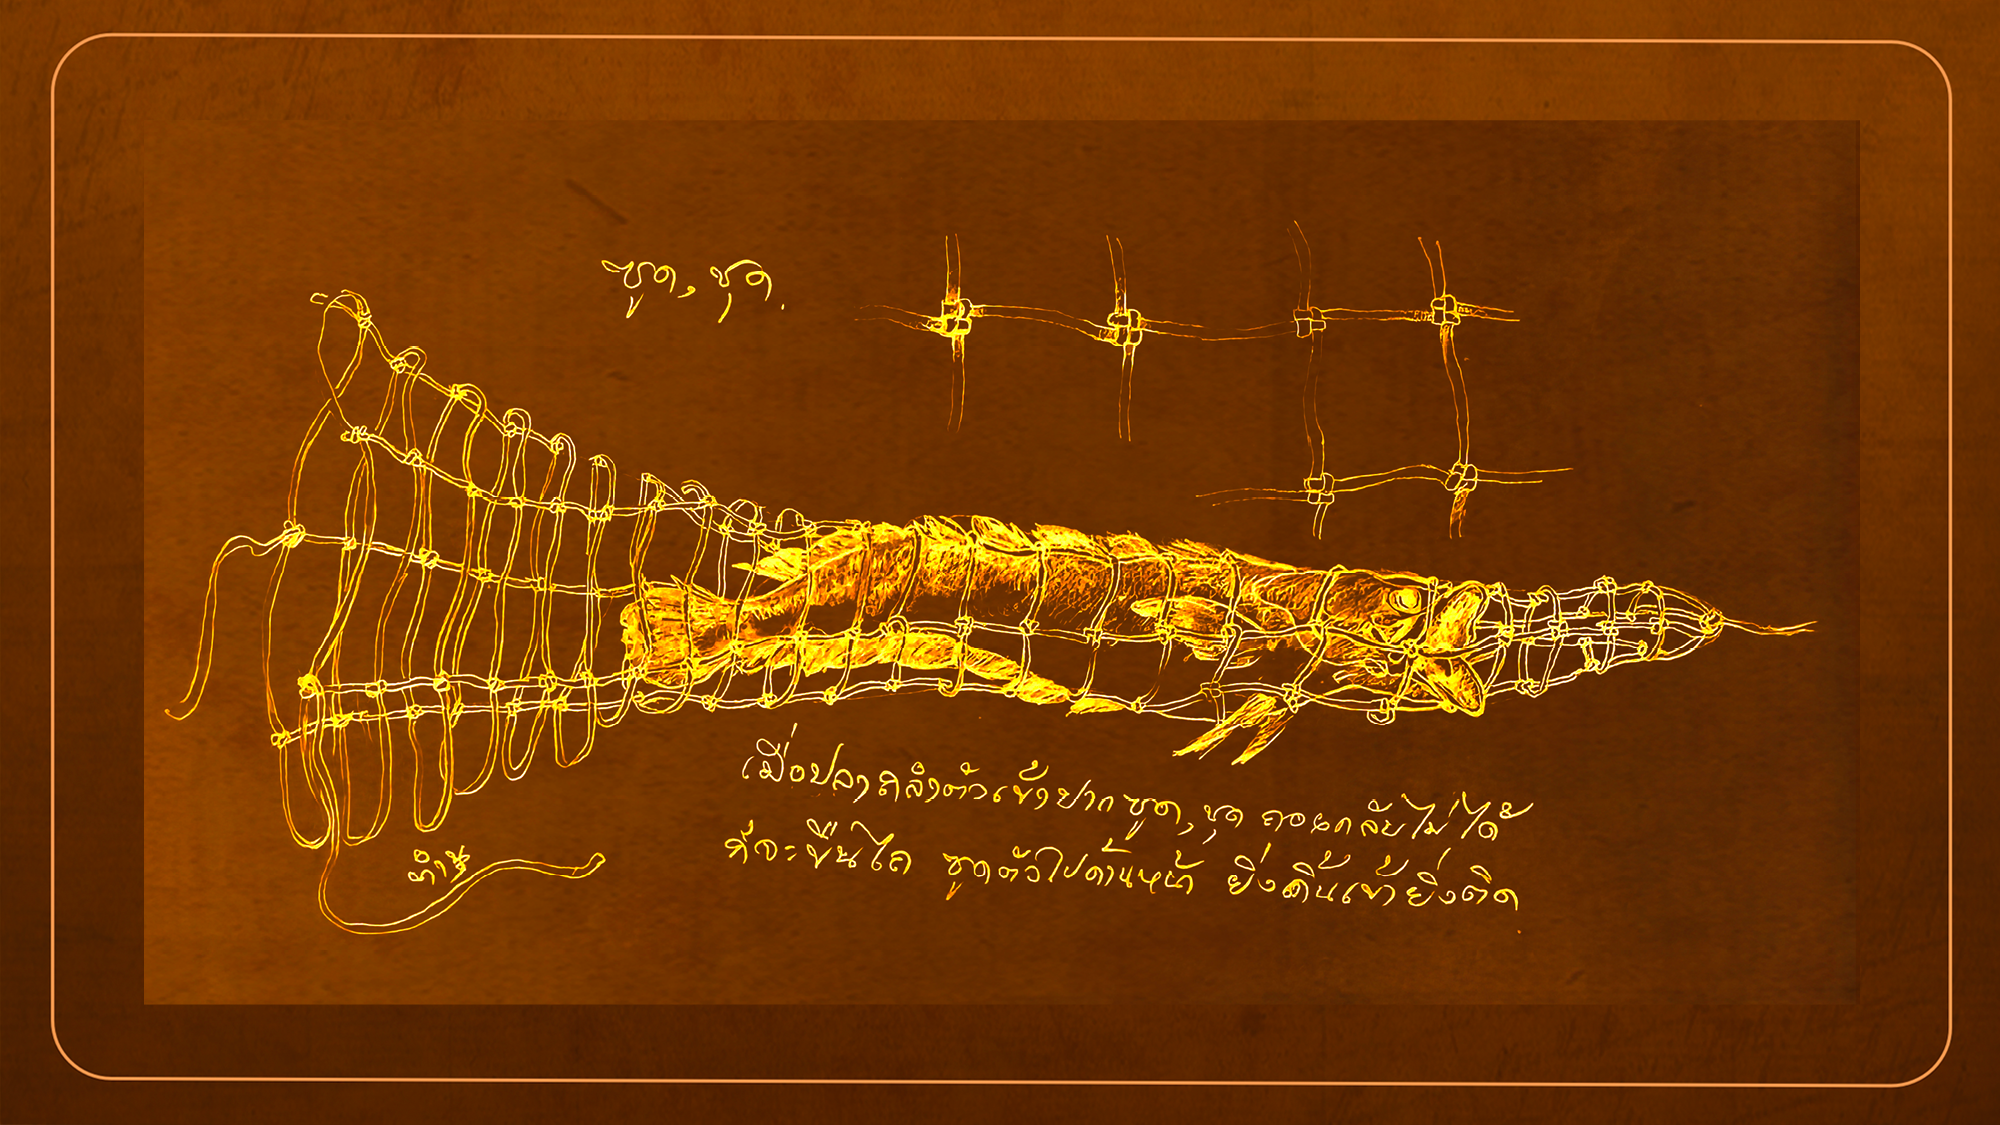 ซูด, ชุด.
เมื่อปลาถลำตัวเข้าปากซูด, ชุด ถอยกลับไม่ได้
ก็จะขืนไถ ซูดตัวไปด้านหน้า ยิ่งดิ้นเข้ายิ่งติด